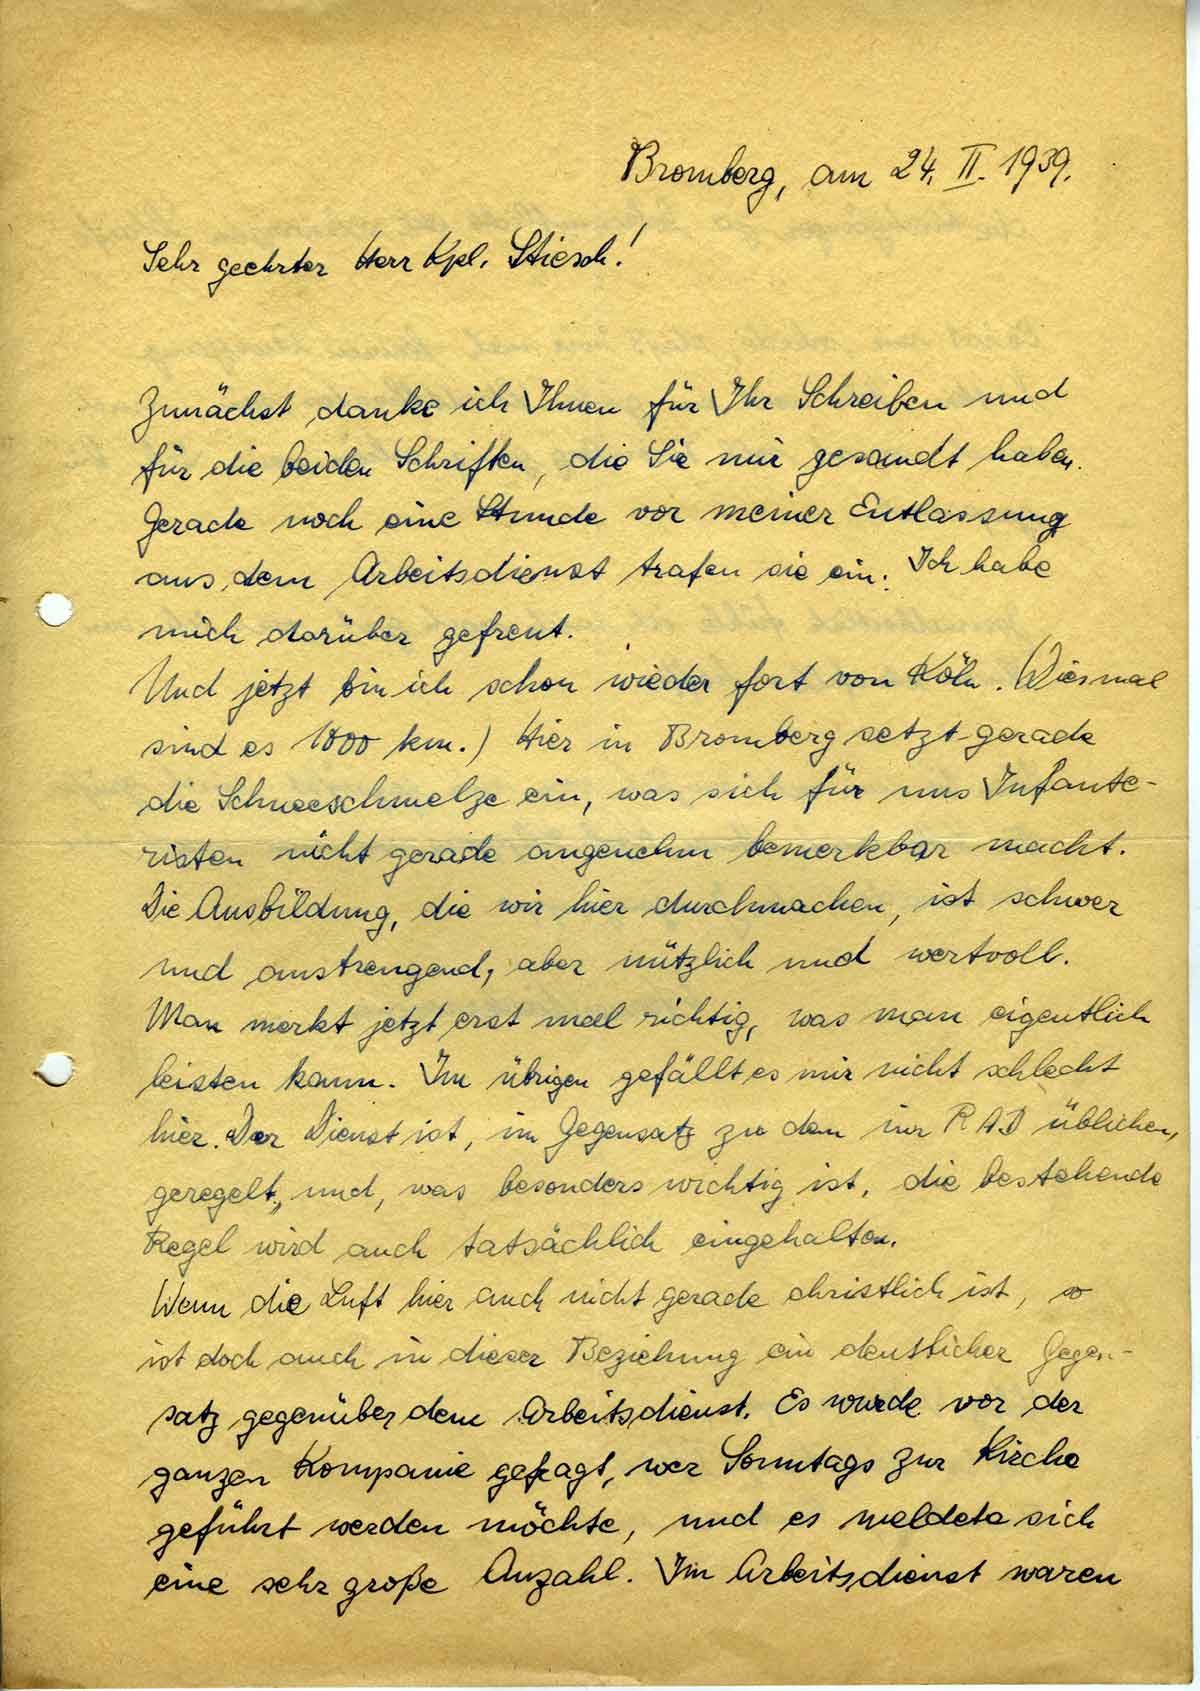 Bromberg, am 24. II. 1939.
Sehr geehrter Herr Kpl. Stiesch!
Zunächst danke ich Ihnen für Ihr Schreiben und
für die beiden Schriften, die Sie mir gesandt haben.
Gerade noch eine Stunde vor meiner Entlassung
aus dem Arbeitsdienst trafen sie ein. Ich habe
mich darüber gefreut.
Und jetzt bin ich schon wieder fort von Köln. (Diesmal
sind es 1000 km.) Hier in Bromberg setzt gerade
die Schneeschmelze ein, was sich für uns Infante-
risten nicht gerade angenehm bemerkbar macht.
Die Ausbildung, die wir hier durchmachen, ist schwer
und anstrengend, aber nützlich und wertvoll.
Man merkt jetzt erst mal richtig, was man eigentlich
leisten kann. Im übrigen gefällt es mir nicht schlecht
hier. Der Dienst ist, im Gegensatz zu dem im RAD üblichen,
geregelt, und, was besonders wichtig ist, die bestehende
Regel wird auch tatsächlich eingehalten.
Wenn die Luft hier auch nicht gerade christlich ist, so
ist doch auch in dieser Beziehung ein deutlicher Gegen-
satz gegenüber dem Arbeitsdienst. Es wurde vor der
ganzen Kompanie gefragt, wer Sonntags zur Kirche
geführt werden möchte, und es meldete sich
eine sehr große Anzahl. Im Arbeitsdienst waren